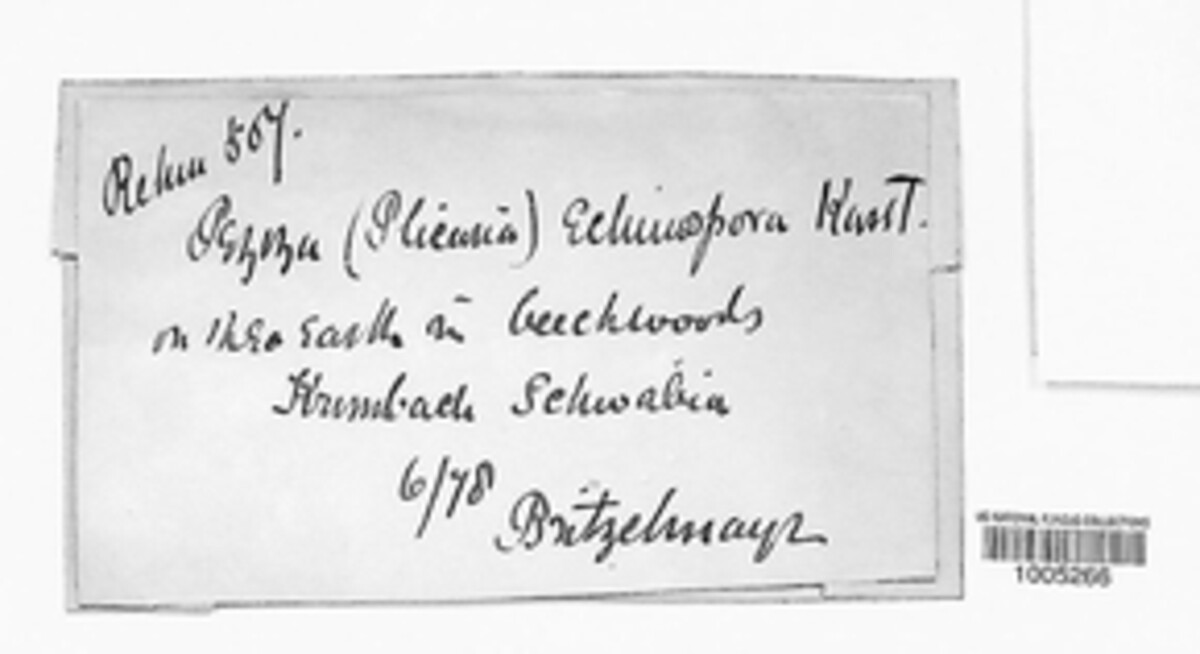 Rehm 507.
Pezıza (Plicaria) Echinospora Karst.
on the earth in beechwoods
Krumbach Schwabia
6/78
Britzelmayr
US NATIONAL FUNGUS COLLECTIONS
1005266